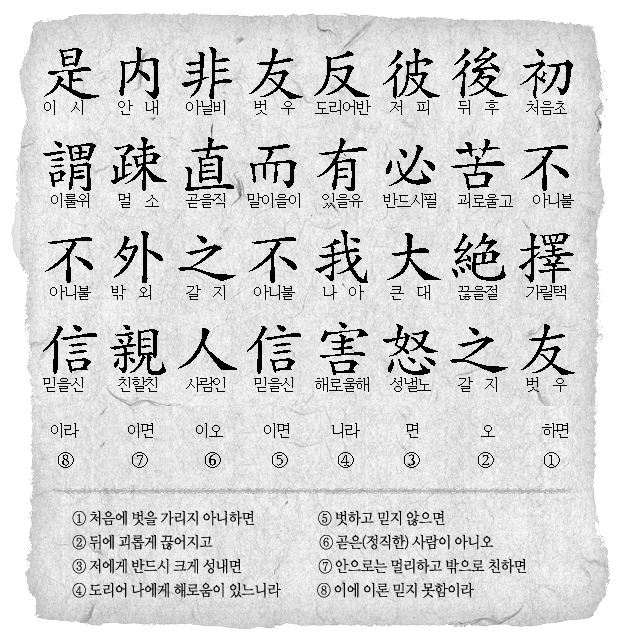 初 처음초 不 아니불 擇 가릴택 友 벗 우 하면 ①
後 뒤 후 苦 괴로울고 絶 끊을절 之 갈 지 오 ②
彼 저 피 必 반드시필 大 큰 대 怒 성낼노 면 ③
反 도리어반 有 있을유 我 나 아 害 해로울해 니라 ④
友 벗 우 而 말이을이 不 아니불 信 믿을신 이면 ⑤
非 아닐비 直 곧을직 之 갈 지 人 사람인 이오 ⑥
内 안 내 疎 멀 소 外 밖 외 親 친할친 이면 ⑦
是 이 시 謂 이룰위 不 아니불 信 믿을신 이라 ⑧
① 처음에 벗을 가리지 아니하면
② 뒤에 괴롭게 끊어지고
③ 저에게 반드시 크게 성내면
④ 도리어 나에게 해로움이 있느니라
⑤ 벗하고 믿지 않으면
⑥ 곧은(정직한) 사람이 아니오
⑦ 안으로는 멀리하고 밖으로 친하면
⑧ 이에 이론 믿지 못함이라